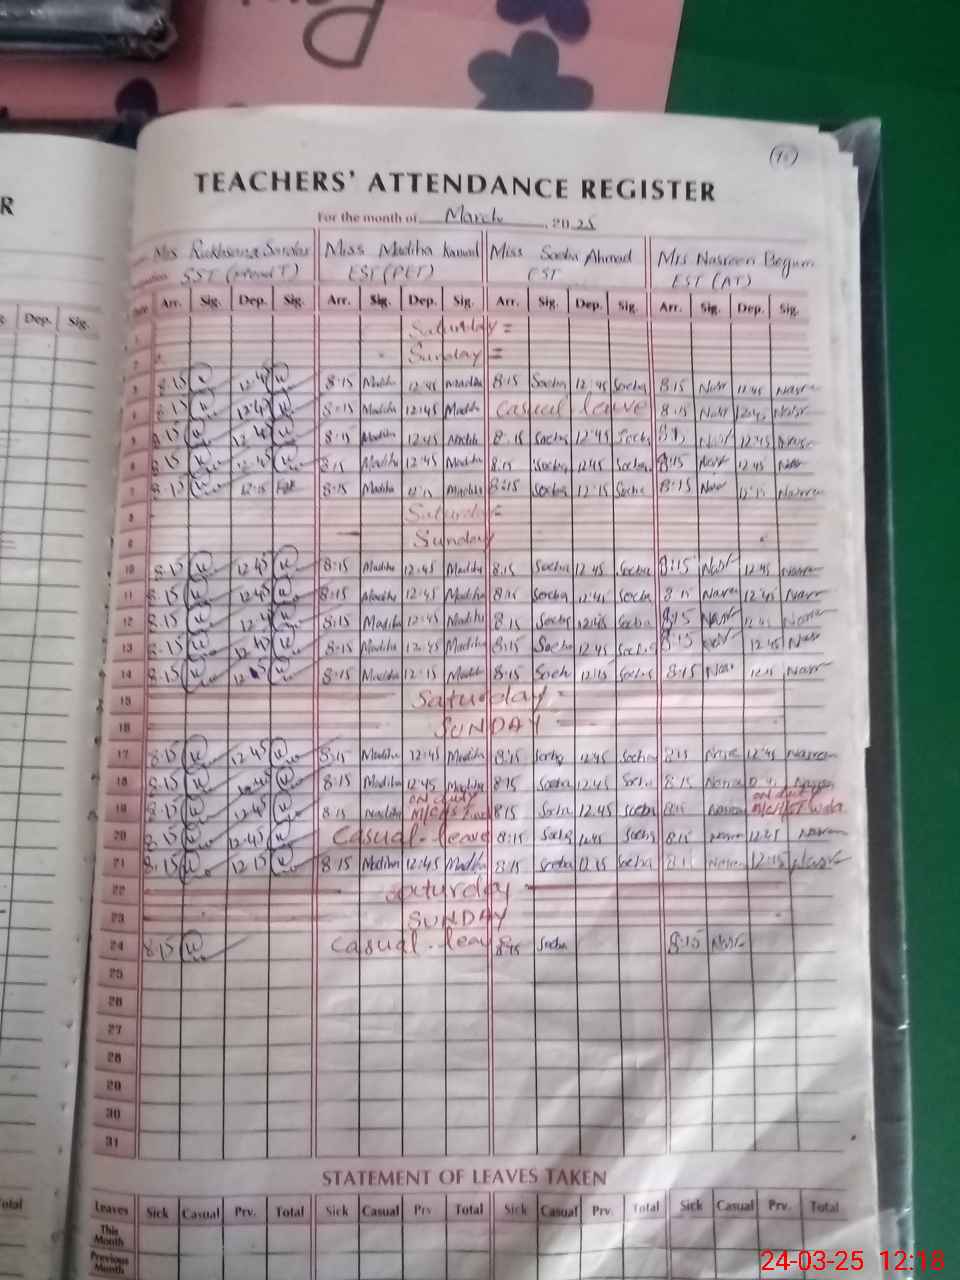 R
TEACHERS' ATTENDANCE REGISTER
For the month of March, 2025
Mrs Rukhsana Sardar Miss Madiha Kanwal Miss Socba Ahmad Mrs Nasreen Begum
SST EST (PET) EST EST (AT)
Dep. Sig.
Arr. Sig. Dep. Sig. Arr. Sig. Dep. Sig. Arr. Sig. Dep. Sig. Arr. Sig. Dep. Sig.
1 Saturday =
2 Sunday =
3 8:15 12:45 8:15 Madiha 12:45 Madiha 8:15 Socba 12:45 Socba 8:15 Nasr 12:45 Nasr
4 8:15 12:45 8:15 Madiha 12:45 Madiha casual leave 8:15 Nasr 12:45 Nasr
5 8:15 12:45 8:15 Madiha 12:45 Madiha 8:15 Socba 12:45 Socba 8:15 Nasr 12:45 Nasr
6 8:15 12:45 8:15 Madiha 12:45 Madiha 8:15 Socba 12:45 Socba 8:15 Nasr 12:45 Nasr
7 8:15 12:15 8:15 Madiha 12:15 Madiha 8:15 Socba 12:15 Socba 8:15 Nasr 12:15
8 Saturday
9 Sunday
10 8:15 12:45 8:15 Madiha 12:45 Madiha 8:15 Socba 12:45 Socba 8:15 Nasr 12:45
11 8:15 12:45 8:15 Madiha 12:45 Madiha 8:15 Socba 12:45 Socba 8:15 12:45
12 8:15 12:45 8:15 Madiha 12:45 Madiha 8:15 Socba 12:45 Socba 8:15 Nasr 12:45
13 8:15 12:45 8:15 Madiha 12:45 Madiha 8:15 Socba 12:45 Socba 8:15 Nasr 12:45 Nasr
14 8:15 12:15 8:15 Madiha 12:15 Madiha 8:15 Socba 12:15 Socba 8:15 Nasr 12:15 Nasr
15 Saturday
16 SUNDAY
17 8:15 12:45 8:15 Madiha 12:45 Madiha 8:15 Socba 12:45 Socba 8:15 12:45
18 8:15 12:45 8:15 Madiha 12:45 Madiha 8:15 Socba 12:45 Socba 8:15 12:45
19 8:15 12:45 8:15 Madiha on duty 8:15 Socba 12:45 Socba 8:15 on duty
20 8:15 12:45 Casual-leave 8:15 Socba 12:45 Socba 8:15 12:45
21 8:15 12:15 8:15 Madiha 12:45 Madiha 8:15 Socba 12:15 Socba 8:15 12:15 Nasr
22 Saturday
23 SUNDAY
24 8:15 Casual-leave 8:15 Socba 8:15 Nasr
25
26
27
28
29
30
31
STATEMENT OF LEAVES TAKEN
Total
Leaves Sick Casual Prv. Total Sick Casual Prv Total Sick Casual Prv. Total Sick Casual Prv. Total
This Month
Previous Month
24-03-25 12:18